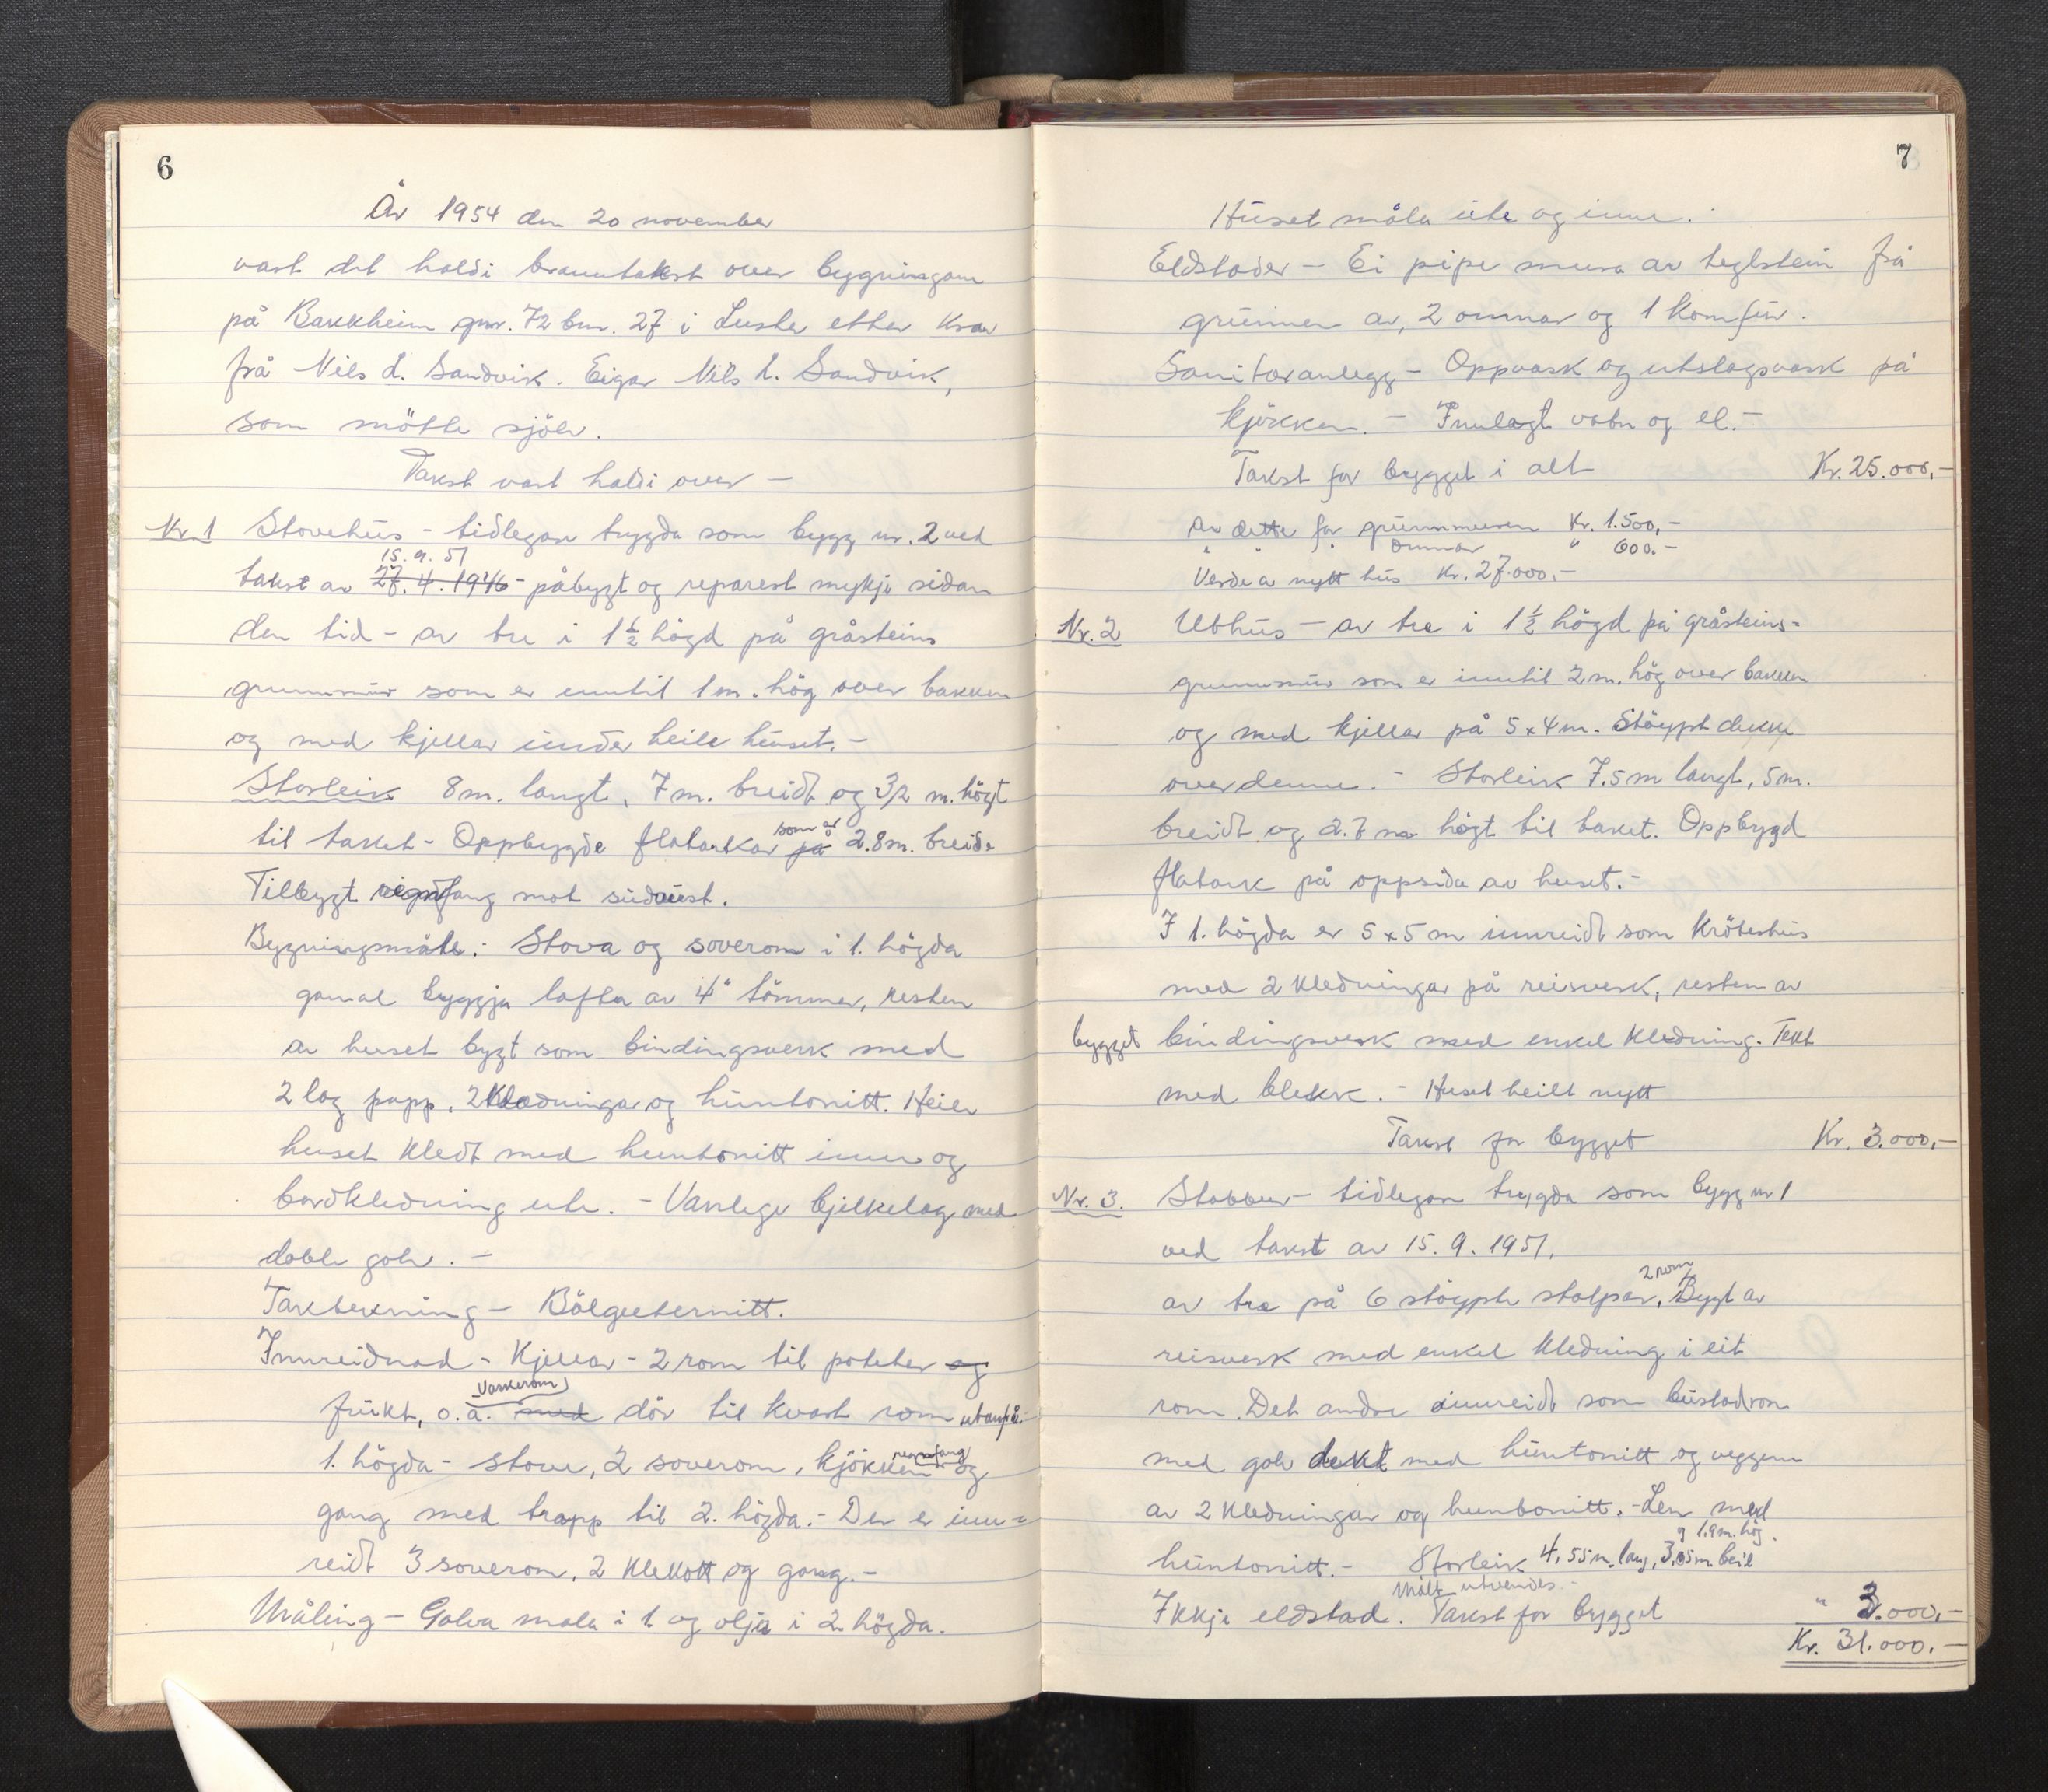 6
År 1954 den 20 november
vart det haldi branntakst over bygningane
på Bakkheim gnr. 72 bnr. 27 i Luster etter krav
frå Nils L. Sandvik. Eigar Nils L. Sandvik,
som mötte sjölv.
Takst vart haldi over —
Nr. 1 Stovehus - tidlegare trygda som bygg nr. 2 ved
15. 9. 51
takst av 27. 4. 1946 - påbygt og reparert mykje sidan
den tid - av tre i 1½ högd på gråsteins
grunnmur som er inntil 1 m. hög over bakken
og med kjellar under heile huset. -
Storleik 8 m. langt, 7 m. breidt og 3,2 m. högt
til taket - Oppbygde flatarkar på som er 2.8 m. breide
Tilbygt regnfang mot sudaust.
Bygningsmåte: Stova og soverom i 1. högda
gamal byggja lafta av 4" tömmer, resten
av huset bygt som bindingsverk med
2 lag papp, 2 kledningar og huntonitt. Heile
huset kledt med huntonitt inne og
bordkledning ute. - Vanlege bjelkelag med
doble golv. -
Taktekning - Bölgeeternitt.
Innreidnad - Kjellar - 2 rom til poteter og
frukt, o.a. Vaskerom med dör til kvart rom utanfrå.-
1. högda - stove, 2 soverom, kjökken regnfang og
gang med trapp til 2. högda. - Der er inn-
reidt 3 soverom, 2 klekott og gang. -
Måling - Golva mala i 1. og olja i 2 högda.
7
Huset måla ute og inne.
Eldstader - Ei pipe mura av teglstein frå
grunnen av, 2 omnar og 1 komfur.
Sanitæranlegg - Oppvask og utslagsvask på
kjökken. - Innlagt vatn og el. -
Takst for bygget i alt Kr. 25.000,-
Av dette for grunnmuren Kr. 1.500,-
" " " omnar " 600.-
Verde a nytt hus Kr. 27.000,-
Nr. 2 Uthus - av tre i 1½ högd på gråsteins-
grunnmur som er inntil 2 m. hög over bakken
og med kjellar på 5 x 4 m. Stöypt dekke
over denne. - Storleik 7.5 m langt, 5 m.
breidt og 2.7 m högt til taket. Oppbygd
flatark på oppsida av huset. -
I 1. högda er 5 x 5 m innreidt som kröterhus
med 2 kledningar på reisverk, resten av
bygget bindingsverk med enkel kledning. Tekt
med blekk. - Huset heilt nytt
Takst for bygget Kr. 3.000,-
Nr. 3. Stabbur - tidlegare trygda som bygg nr 1
ved takst av 15. 9. 1951.
av tre på 6 stöypte stolpar. 2 rom Bygt av
reisverk med enkel kledning i eit
rom. Det andre innreidt som bustadrom
med golv dekt med huntonitt og veggene
av 2 kledningar og huntonitt. - Lem med
huntonitt. - Storleik 4,55 m. lang, 3,05 m. brei og 1.9 m. hög.
Målt utvendes. -
Ikkje eldstad. Takst for bygget " 3.000,-
Kr. 31.000.-